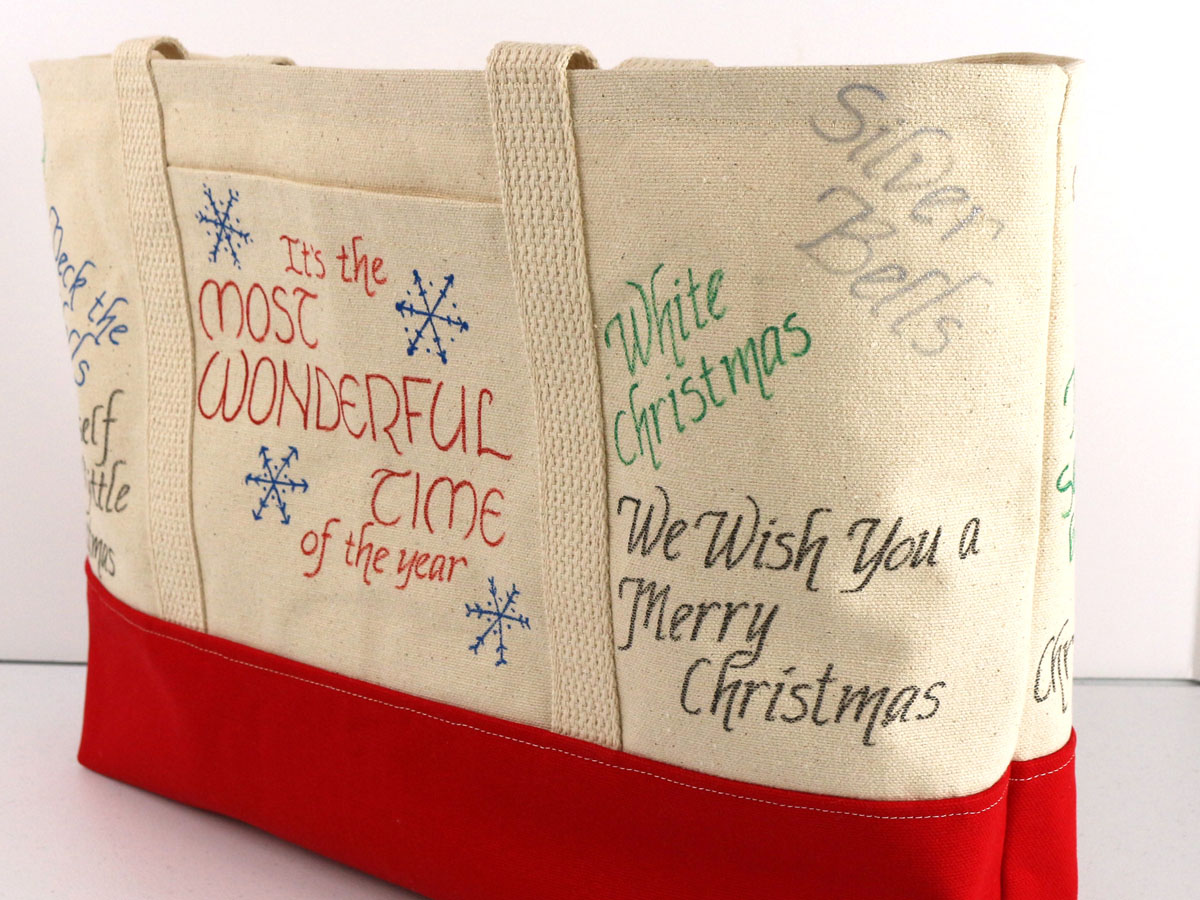 Deck the
It's the
MOST
WONDERFUL
TIME
of the year
White
christmas
Silver
Bells
We Wish You a
Merry
Christmas